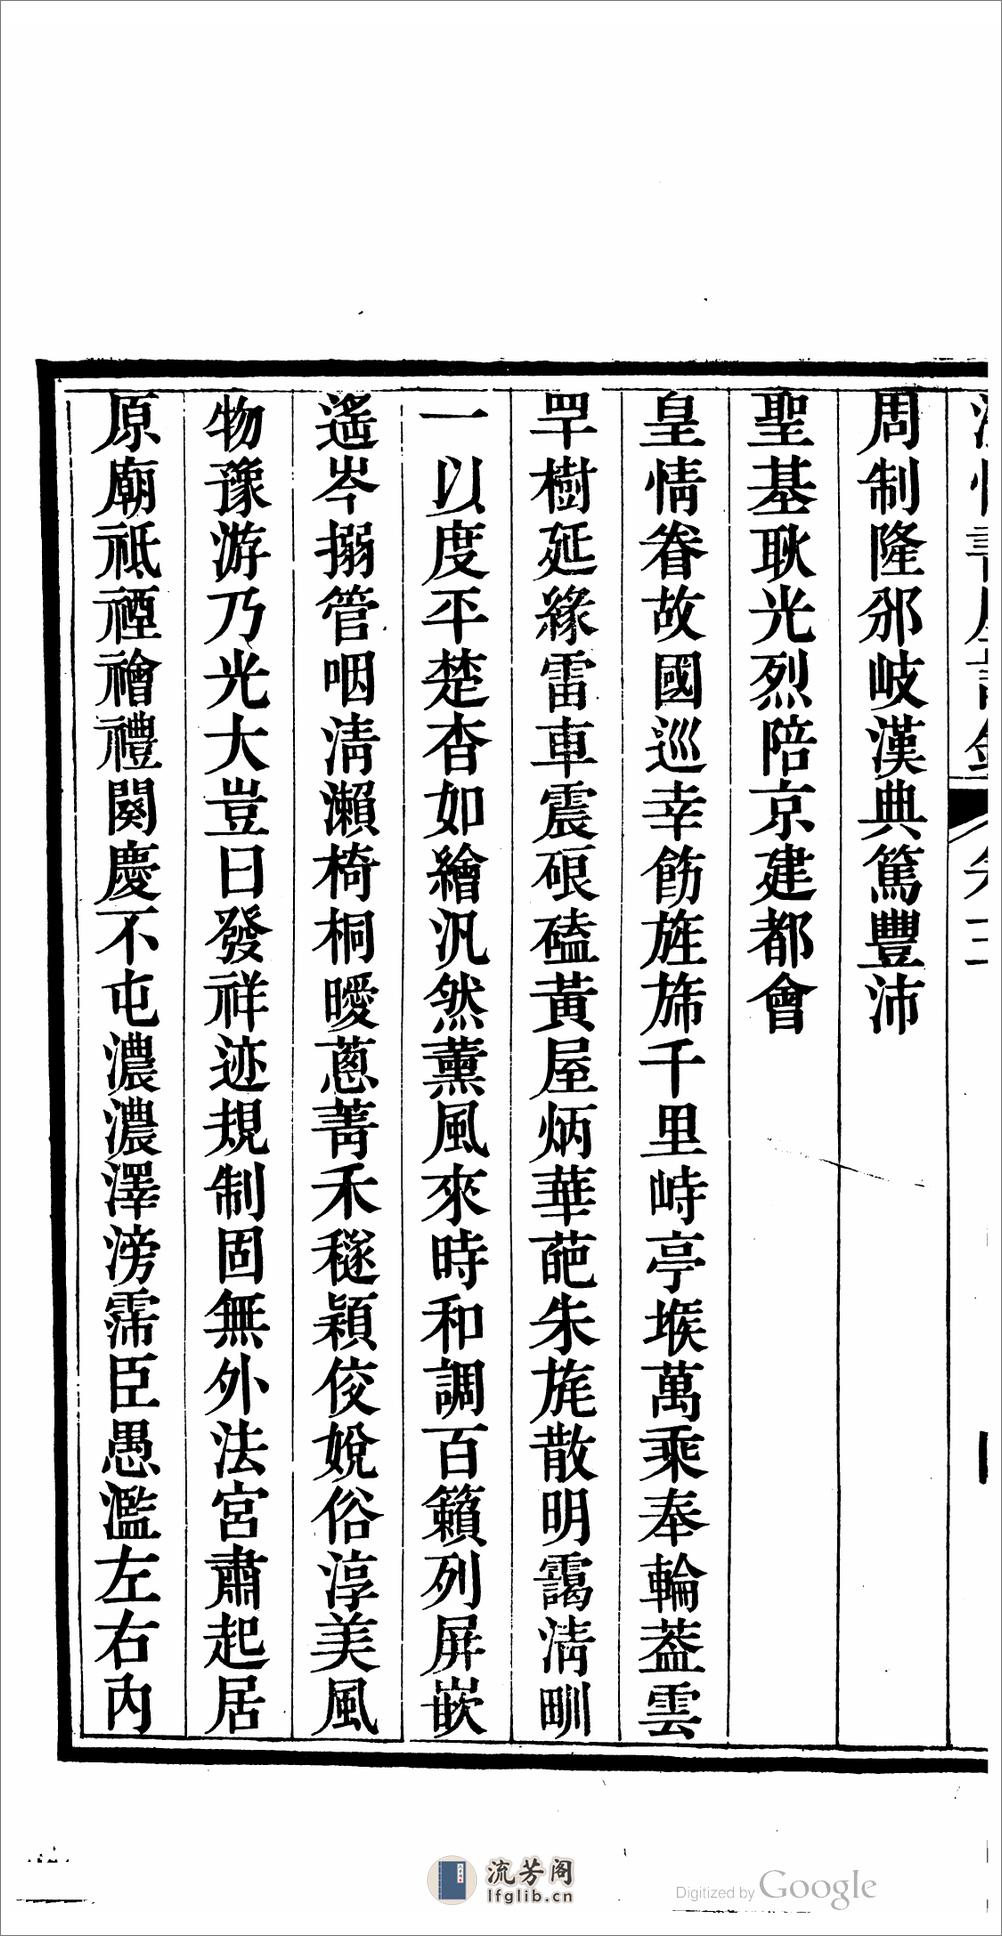 周制隆邠岐漢典篤豐沛
聖基耿光烈陪京建都會
皇情眷故國巡幸飭旌斾千里峙亭堠萬乘奉輪葢雲
罕樹延緣雷車震硠磕黃屋炳華葩朱旄散明靄淸甽
一以度平楚杳如繪汎然薰風來時和調百籟列屏嵌
遙岑搦管咽淸瀨椅桐曖蔥菁禾穟穎俊娧俗淳美風
物豫游乃光大豈曰發祥迹規制固無外法宮肅起居
原廟祗禋禬禮闋慶不屯濃濃澤滂霈臣愚濫左右內
流芳阁
lfglib.cn
Digitized by Google